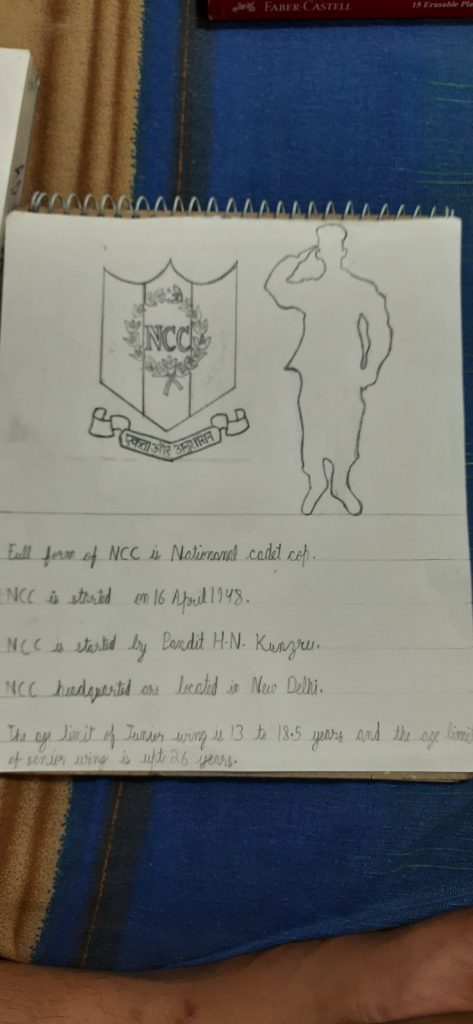 FABER-CASTELL
15 Erasable Pla
NCC
एकता और अनुशासन
Full form of NCC is Nationanal cadet cop.
NCC is started on 16 April 1948.
NCC is started by Pandit H.N. Kunzru.
NCC headquarted are located in New Delhi.
The age limit of Junior wing is 13 to 18.5 years and the age limit
of senior wing is upto 26 years.